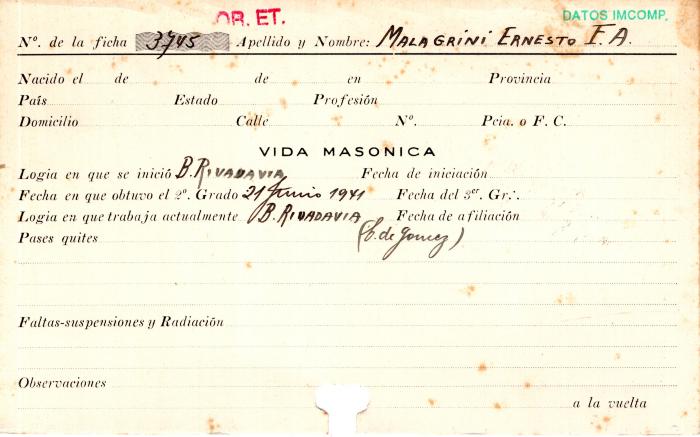 OR. ET.
DATOS IMCOMP.
Nº. de la ficha 3745 Apellido y Nombre: MALAGRINI ERNESTO F.A.
Nacido el de de en Provincia
País Estado Profesión
Domicilio Calle Nº. Pcia. o F. C.
VIDA MASONICA
Logia en que se inició B. RIVADAVIA Fecha de iniciación
Fecha en que obtuvo el 2º. Grado 21 Junio 1941 Fecha del 3er. Gr∴.
Logia en que trabaja actualmente B. RIVADAVIA Fecha de afiliación
Pases quites (C. de Gomez)
Faltas-suspensiones y Radiación
Observaciones
a la vuelta